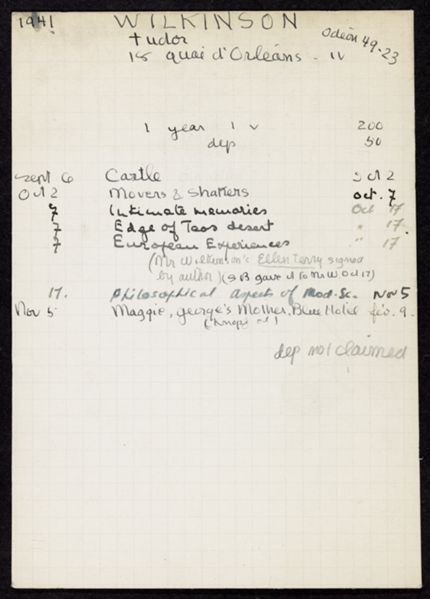 1941 WILKINSON
Tudor Odéon 49.23
18 quai d'Orléans - IV
1 year 1 v 200
dep 50
Sept 6 Castle Oct 2
Oct 2 Movers & Shakers oct. 7
7 Intimate memories Oct 17
7 Edge of Taos desert " 17
7 European Experiences " 17
(Mr Wilkinson's Ellen Terry signed
by author) (SB gave it to Mr W Oct 17)
17. Philosophical aspects of Mod. Sc. Nov 5
Nov 5 Maggie, George's Mother, Blue Hotel fév. 9.
(Knopf ed)
dep not claimed